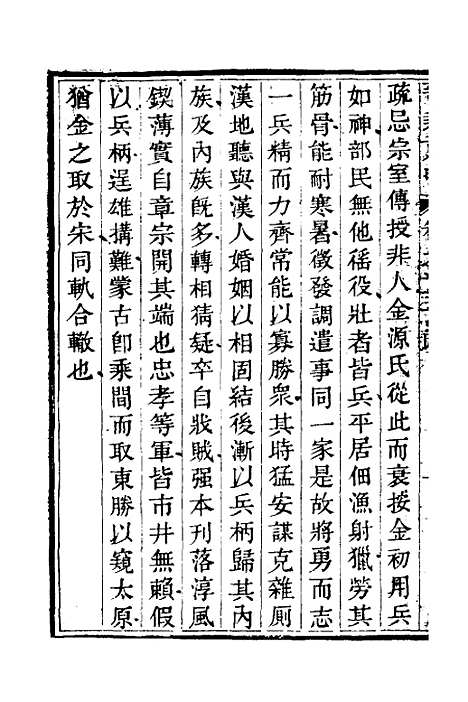 疏忌宗室傳授非人金源氏從此而衰按金初用兵
如神部民無他徭役壯者皆兵平居佃漁射獵勞其
筋骨能耐寒暑徵發調遣事同一家是故將勇而志
一兵精而力齊常能以寡勝衆其時猛安謀克雜厠
漢地聽與漢人婚姻以相固結後漸以兵柄歸其內
族及內族旣多轉相猜疑卒自戕賊强本刊落淳風
鍥薄實自章宗開其端也忠孝等軍皆市井無賴假
以兵柄逞雄搆難蒙古卽乘間而取東勝以窺太原
猶金之取於宋同軌合轍也